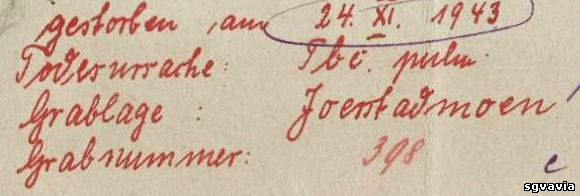 gestorben , am 24. XI. 1943
Todesursache: Tbc. pulm.
Grablage : Joerstadmoen
Grabnummer: 398
c
sgvavia